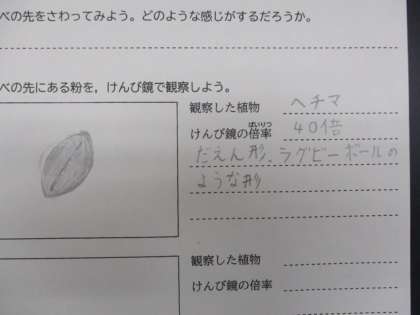 べの先をさわってみよう。どのような感じがするだろうか。
べの先にある粉を，けんび鏡で観察しよう。
観察した植物 ヘチマ
けんび鏡の倍率 40倍
ばいりつ
だえん形、ラグビーボールの
ような形
観察した植物
けんび鏡の倍率